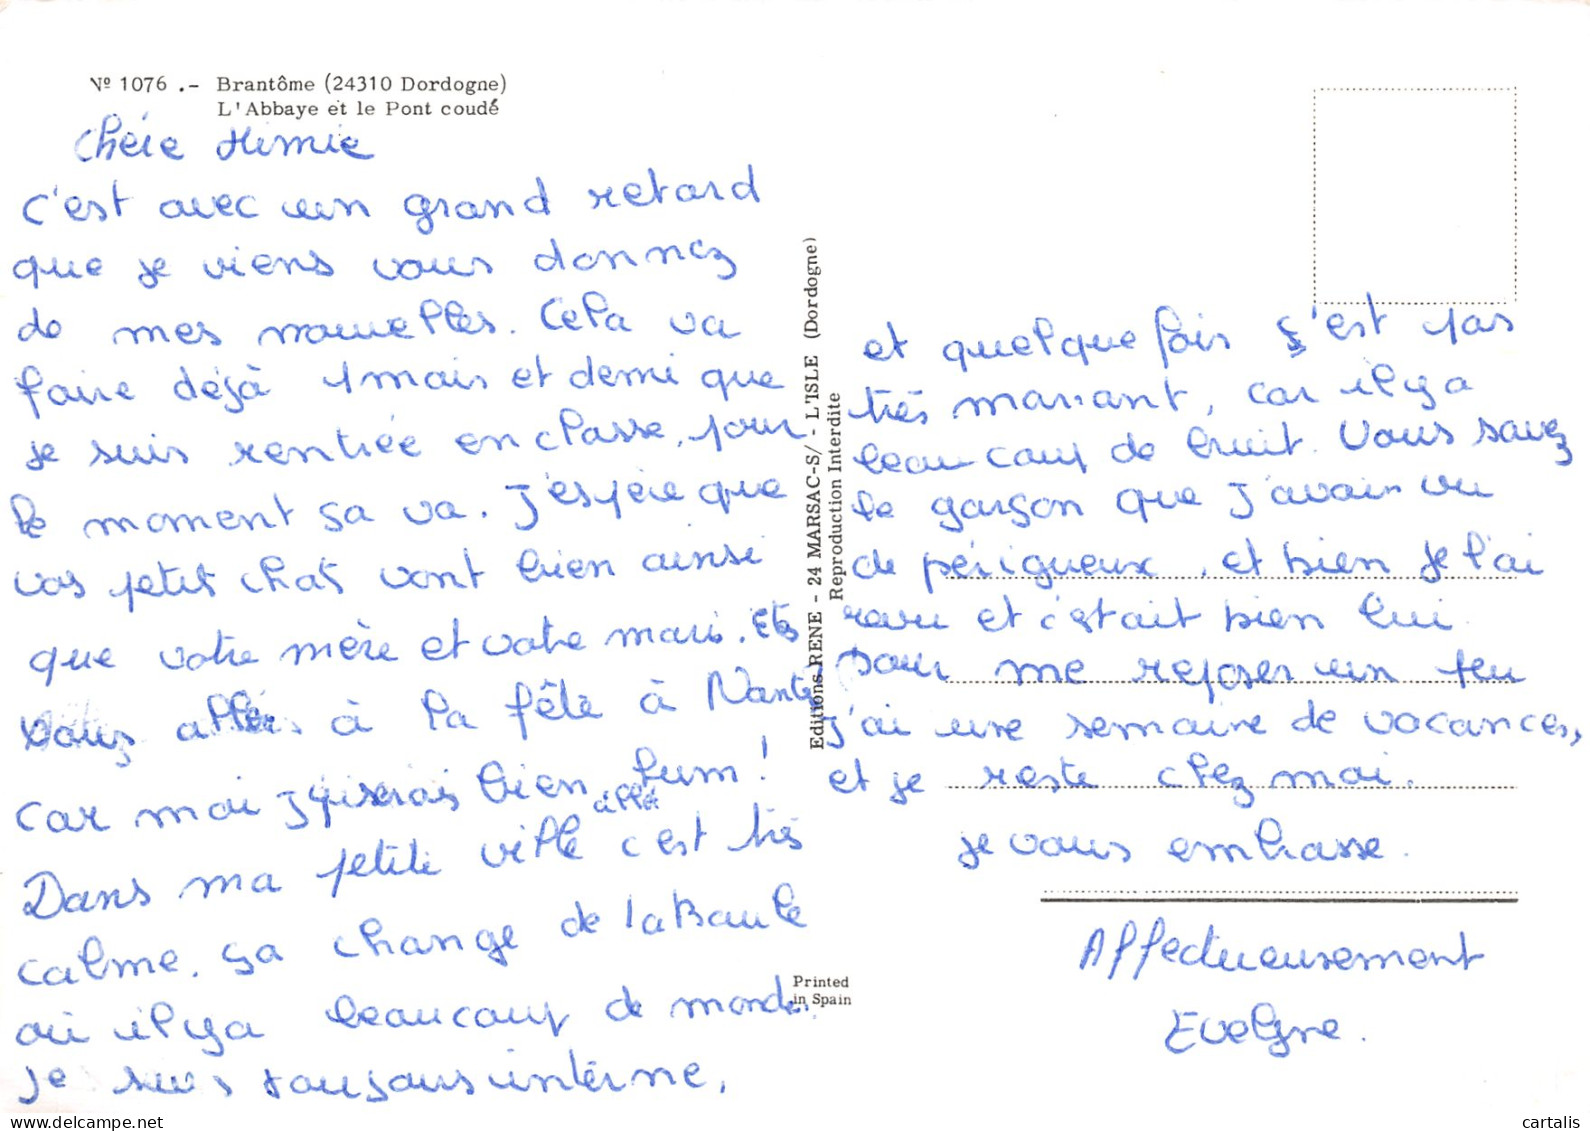 Nº 1076 .- Brantôme (24310 Dordogne)
L'Abbaye et le Pont coudé
Chère Mimie
c'est avec un grand retard
que je viens vous donnez
de mes nouvelles. Cela va
faire déjà 1 mois et demi que
je suis rentrée en classe, pour
le moment sa va. J'espère que
vos petits chats vont bien ainsi
que votre mère et votre mari. Etes
vous allés à la fête à Nantes
car moi j'y serais bien allé
Dans ma petite ville c'est très
calme, sa change de la Baule
où il y a beaucoup de monde.
je suis toujours interne,
et quelque fois s'est pas
très marrant, car il y a
beaucoup de bruit. Vous savez
le garçon que j'avais vu
de périgueux, et bien je l'ai
revu et c'était bien lui.
Pour me reposer un peu
j'ai une semaine de vacances,
et je reste chez moi.
je vous embrasse.
Affectueusement
Evelyne.
Editions RENE - 24 MARSAC-S/ - L'ISLE (Dordogne)
Reproduction Interdite
Printed
in Spain
cartalis
delcampe.net